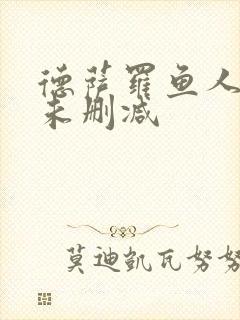 德萨罗鱼人
未删减
莫迪凯瓦努努